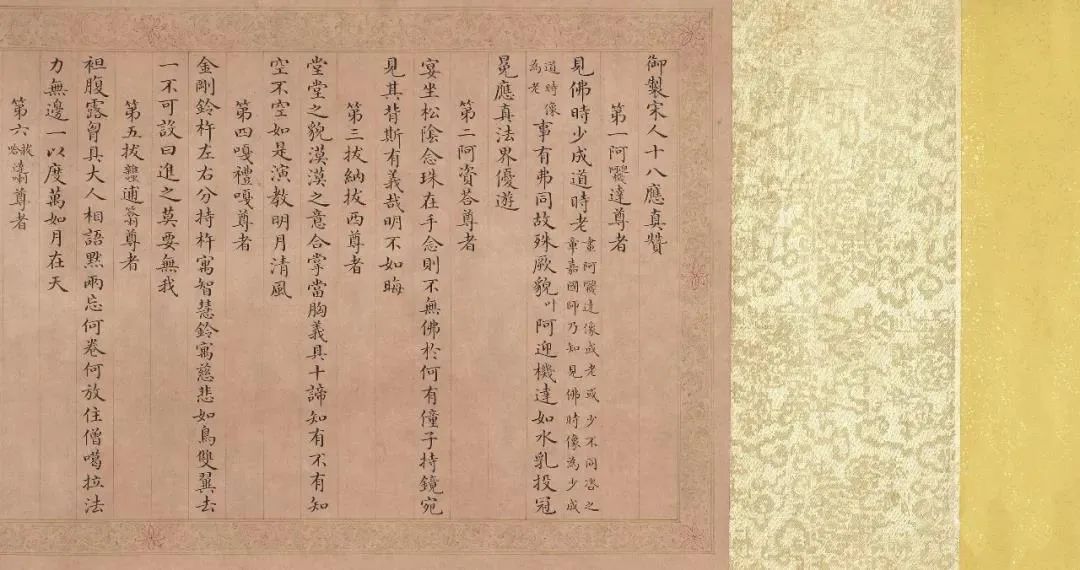 御製宋人十八應真贊
第一阿達尊者
見佛時少成道時老畫阿達像或老或少不同咨之
章嘉國師乃知見佛時像為少成
道時像
為老
事有弗同故殊厥貌叶阿迎機達如水乳投冠
冕應真法界優遊
第二阿資答尊者
宴坐松陰念珠在手念則不無佛於何有僮子持鏡宛
見其背斯有義哉明不如晦
第三拔納拔西尊者
堂堂之貌漠漠之意合掌當胸義具十諦知有不有知
空不空如是演教明月清風
第四嘎禮嘎尊者
金剛鈴杵左右分持杵寓智慧鈴寓慈悲如鳥雙翼去
一不可設曰進之莫要無我
第五拔逋尊者
袒腹露胷具大人相語默兩忘何卷何放住僧噶拉法
力無邊一以度萬如月在天
第六拔哈達喇尊者